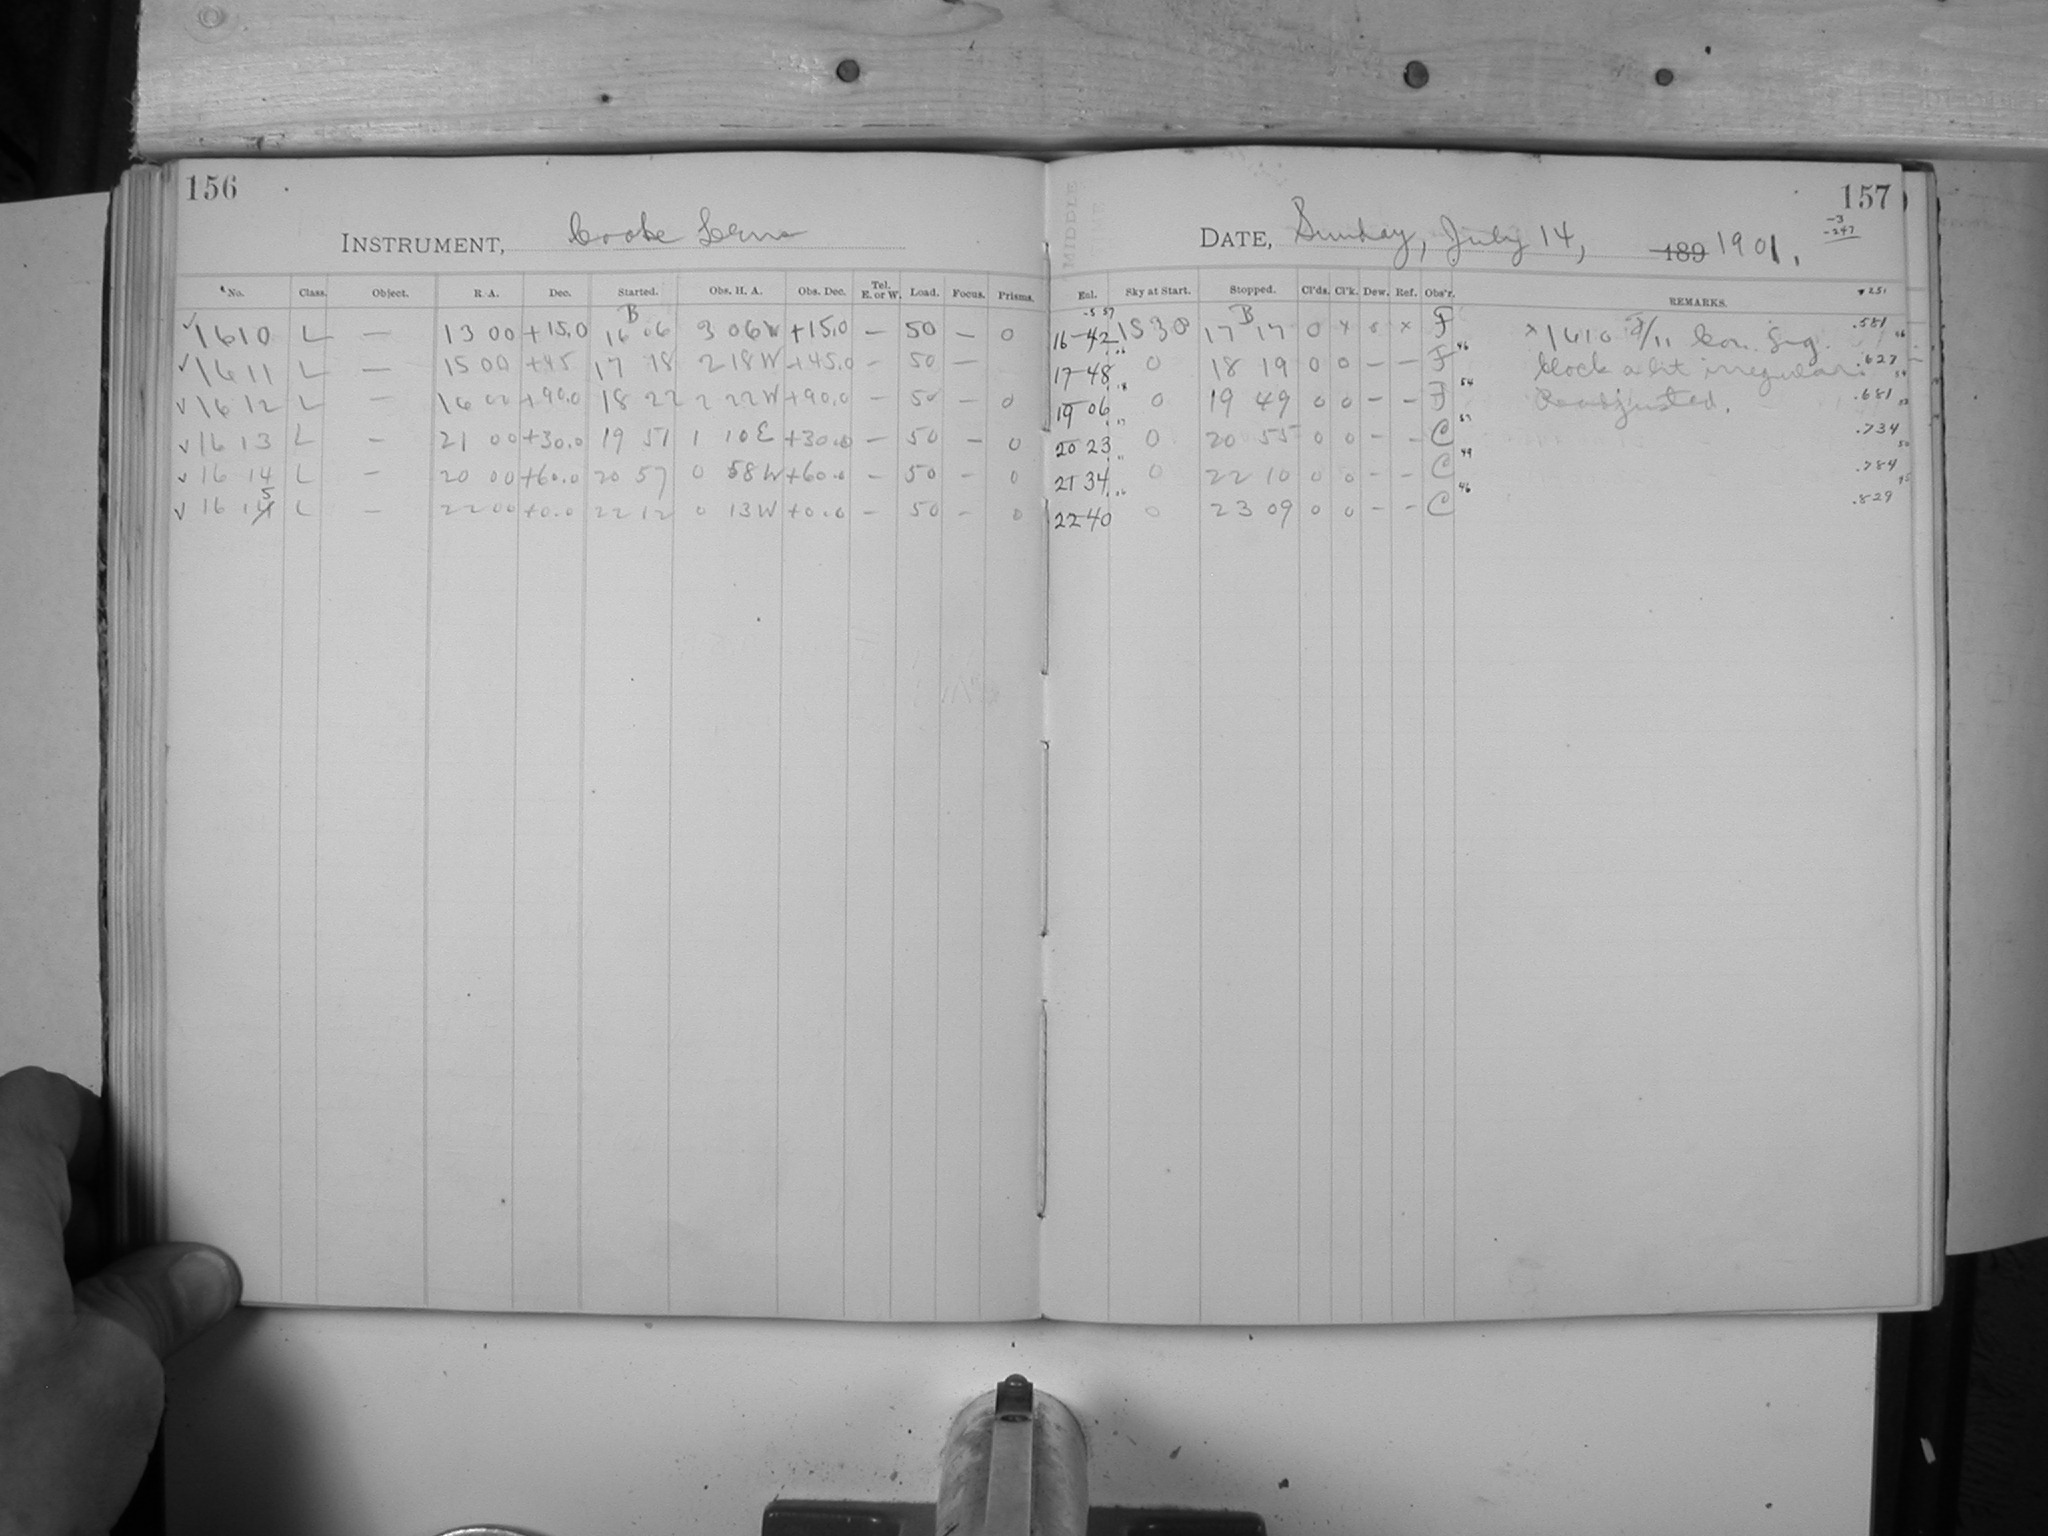 156
INSTRUMENT, Cooke Lens
No. Class. Object. R. A. Dec. Started. Obs. H. A. Obs. Dec. Tel. E. or W. Load. Focus. Prisms.
B
✓1610 L — 13 00 +15.0 16 06 3 06W +15.0 — 50 — 0
✓1611 L — 15 00 +45 17 18 2 18W +45.0 — 50 —
✓1612 L — 16 00 +90.0 18 22 2 22W +90.0 — 50 — 0
✓1613 L — 21 00 +30.0 19 51 1 10E +30.0 — 50 — 0
✓1614 L — 20 00 +60.0 20 57 0 58W +60.0 — 50 — 0
✓1615 L — 22 00 +0.0 22 12 0 13W +0.0 — 50 — 0
MIDDLE
157
-3
-247
DATE, Sunday, July 14, 189 1901.
Exl. Sky at Start. Stopped. Cl'ds. Cl'k. Dew. Ref. Obs'r. REMARKS.
-5 57 B
16 42 1530 17 17 0 x 0 x F x 1610 .581
17 48 0 18 19 0 0 — — F 46 Clock a bit irregular. .627
19 06 0 19 49 0 0 — — F 54 Readjusted. .681
20 23 0 20 55 0 0 — — C .734
21 34 0 22 10 0 0 — — C 49 .784
22 40 0 23 09 0 0 — — C 46 .829